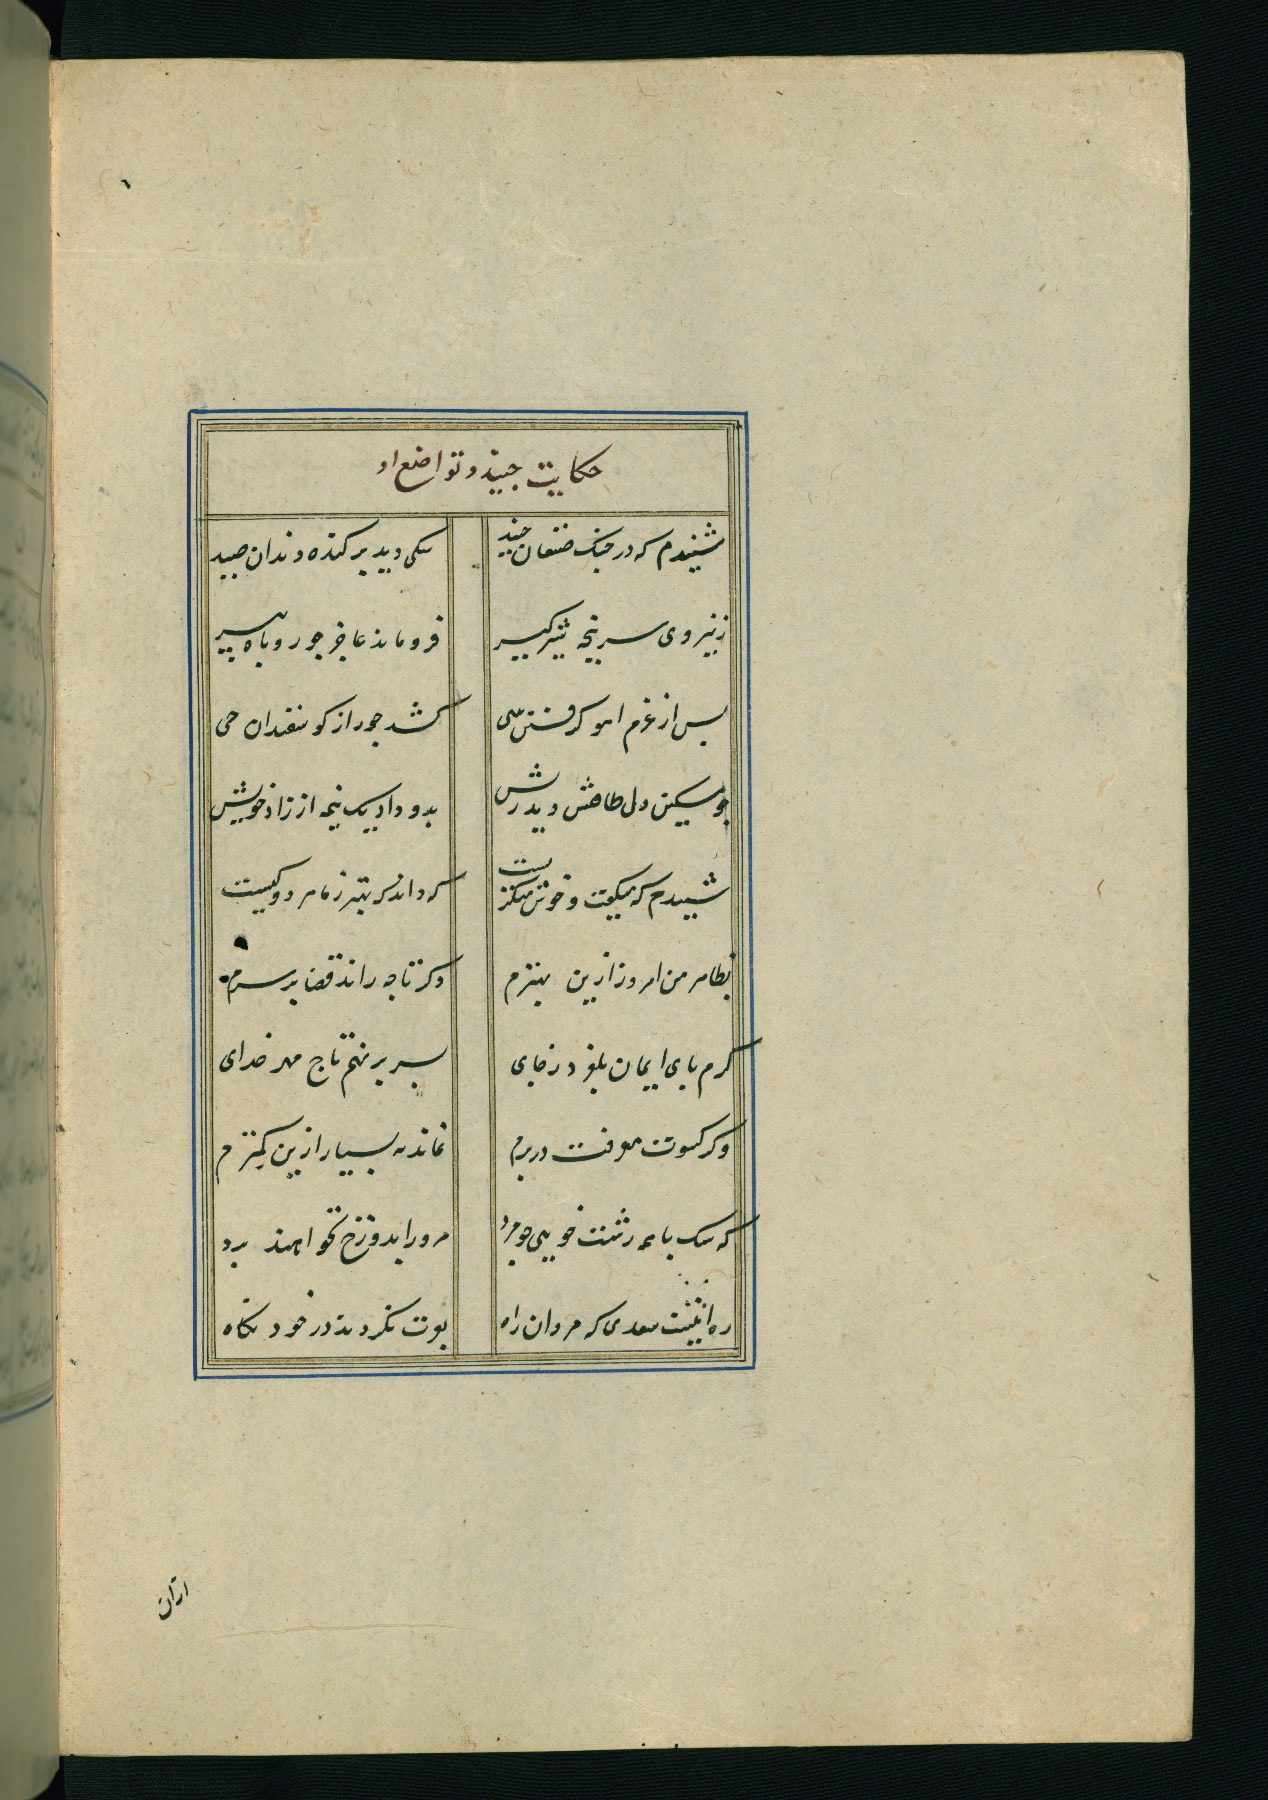 حکایت جنید و تواضع او
شنیدم که در جنک صنعان جنید سکی دید بر کنده دندان صید
ز نیروی سر پنجه شیر کیر فرو مانده عاجز جو روباه پیر
بس از غرم اهو کرفتن بپی کشد جور از کوسفندان حی
جو مسکین دل طاقتش دید ریش بدو داد یک نیمه از زاد خویش
شنیدم که میکفت و خوش میکریست که داند که بهتر ز ما هر دو کیست
بظاهر من امروز ازین بهترم دکر تا چه راند قضا بر سرم
کرم بای ایمان بلغزد ز جای بسر بر نهم تاج مهر خدای
وکر کسوت معرفت در برم نماند به بسیار ازین کمترم
که سک با همه زشت خویی جو مرد مر ورا بدوزخ نخواهند برد
ره اینست سعدی که مردان راه بعزت نکردند در خود نکاه
ازان